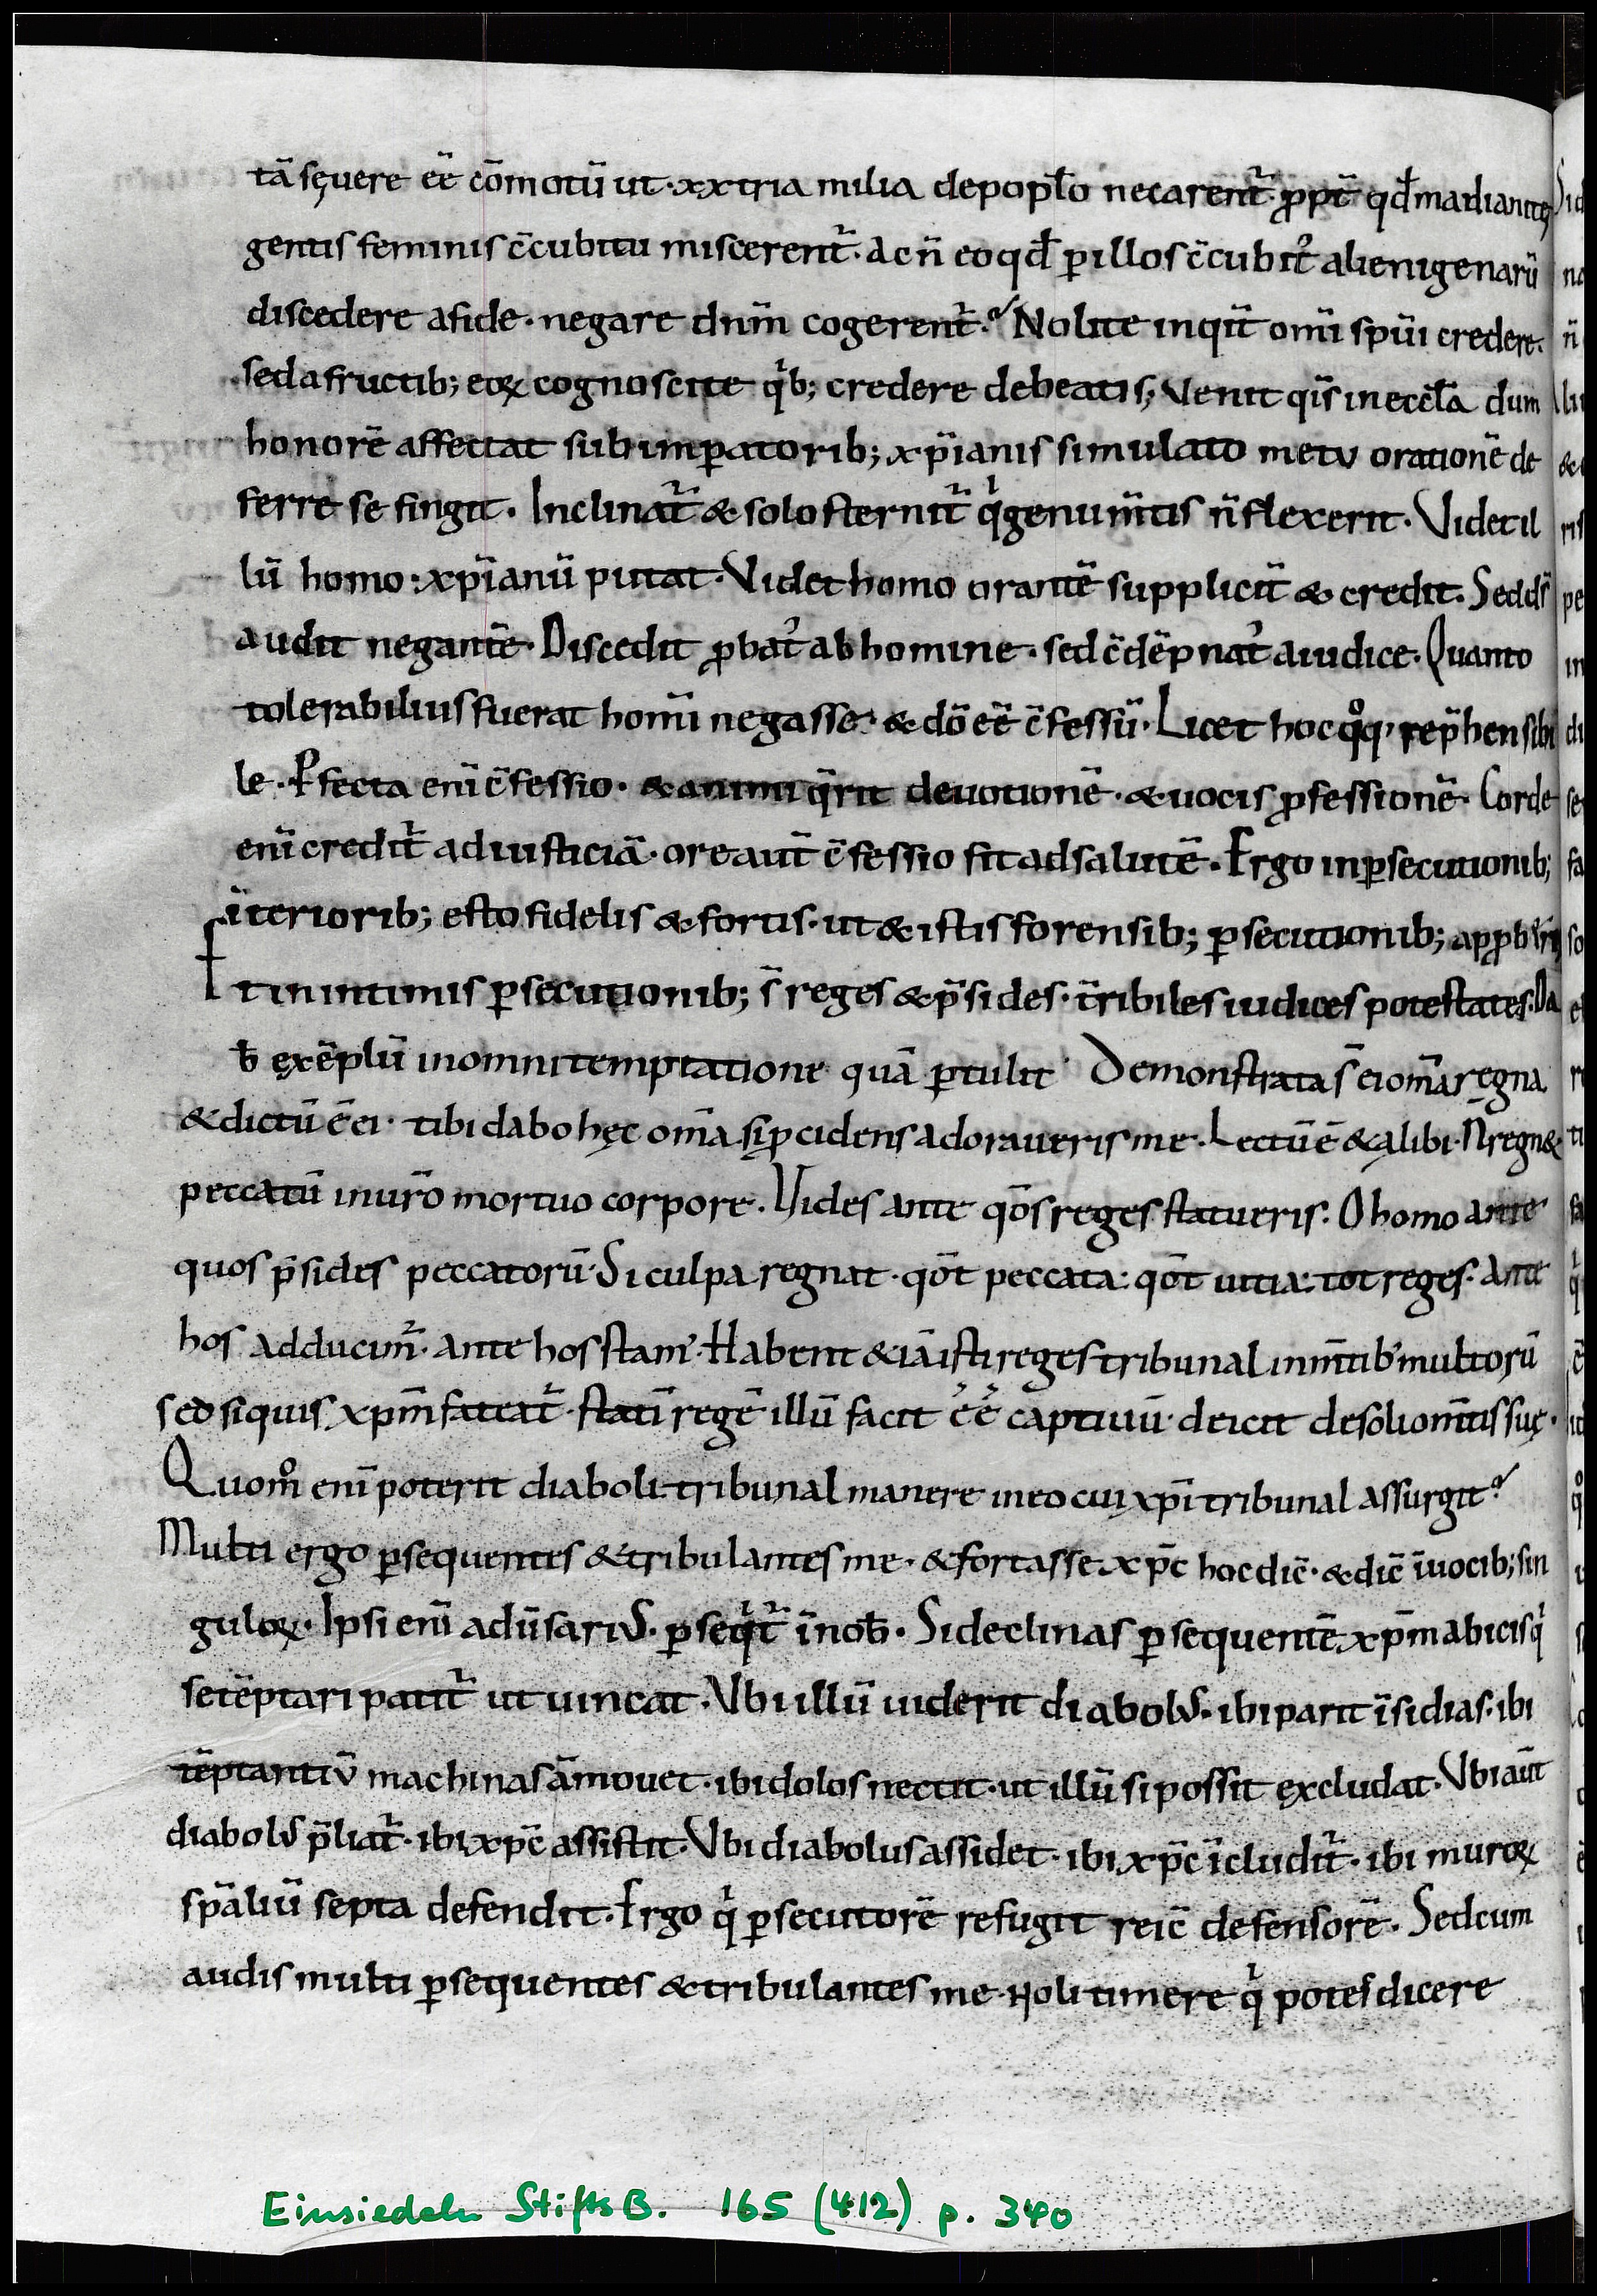 tā sęuere eē cōmotū ut·xxtria milia depopło necarent᷑· ꝓpt̄ qđ madianitę
gentis feminis c̄cubitu miscerent᷑. ac n̄ eoqđ ꝑ illos c̄cubit᷒ alienigenarū
discedere afide·negare dn̄m cogerent᷑? Nolite inqͥt om̄i spūi credere.
sed a fructib; eoꝝ cognoscite qͥb; credere debeatis; Venit qͥs in eccła dum
honorē affectat sub imꝑatorib; xp̄ianis simulato metu orationē de
ferre se fingit. Inclinat᷑ & solo sternit᷑ qͥ genu m̄tis n̄ flexerit. Videt il
lū homo: xp̄ianū putat. Videt homo orantē suppliciť & credit. Sed ds̄
audit negantē. Discedit ꝓbat᷒ ab homine· sed c̄dēpnat᷒ a iudice. Quanto
tolerabilius fuerat hom̄i negasse· & dō eē c̄fessū. Licet hoc qͦq· rep̄hensibi
le. Ꝑfecta eni c̄fessio· & animi qͣrit deuotionē· & uocis ꝓfessionē. Corde
eni credit᷑ ad iusticiā· ore aūt c̄fessio fit ad salutē. Ergo in ꝑsecutionib;
īteriorib; esto fidelis & fortis· ut & istis forensib; ꝑsecutionib;
t in intimis ꝑsecutionib; s̄ reges & p̄sides· t̄ribiles iudices potestates. Da
ƀ ęxēplū in omni temptatione quā ꝑtulit Demonstrata s̄ ei om̄a regna
& dictū ē ei· tibi dabo hęc om̄a si ꝓcidens adoraueris me. Lectū ē & alibi· N̄ regn&
peccatū in ur̄o mortuo corpore. Vides ante qōs reges statueris. O homo ante
quos p̄sides peccatorū. Si culpa regnat· qōt peccata: qōt uitia: tot reges. Ante
hos adducim᷒· ante hos stam᷒. Habent & iā isti reges tribunal in m̄tib᷒ multorū
sed siquis xp̄m fateat᷑· statī regē illū facit eē captiuū· deicit de solio m̄tis suę.
Quom̊ eni poterit diaboli tribunal manere in eo cui xp̄i tribunal assurgit?
Multi ergo ꝑsequentes & tribulantes me· & fortasse xp̄c hoc dic̄· & dic̄ ī uocib; sin
guloꝝ. Ipsi eni adūsariꝰ· ꝑseqͥt᷑ ī noƀ. Si declinas ꝑsequentē xp̄m abicis qͥ
se tēptari patit᷑ ut uincat. Vbi illū uiderit diabolꝰ· ibi parit īsidias· ibi
tēptantiū machinas āmouet· ibi dolos nectit· ut illū si possit ęxcludat. Vbi aūt
diabolꝰ p̄liat᷑· ibi xp̄c assistit. Vbi diabolus assidet· ibi xp̄c īcludit᷑· ibi muroꝝ
spāliū septa defendit. Ergo qͥ ꝑsecutorē refugit reic̄ defensorē. Sed cum
audis multi ꝑsequentes & tribulantes me· Noli timere qͥ potes dicere
Einsiedeln StiftsB. 165 (412) p. 340